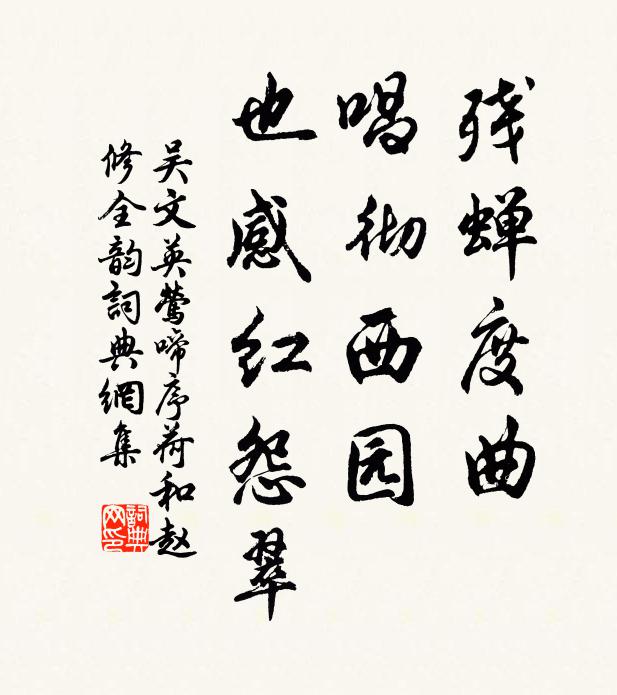 残蝉度曲
唱彻西园
也感红怨翠
吴文英莺啼序荷和赵
修全韵詞典網集
詞典
网印